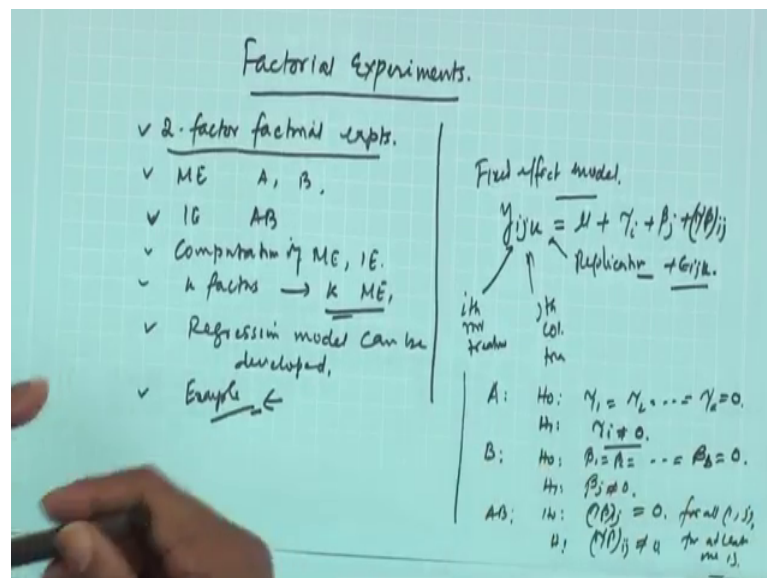 Factorial Experiments.
✓ 2-factor factorial expts.
✓ ME A, B,
✓ IE AB
✓ Computation of ME, IE.
✓ k factors → k ME,
✓ Regression model can be
developed,
✓ Example ←
Fixed effect model.
yijk = μ + τi + βj + (τβ)ij
Replication + εijk.
ith jth
row col.
treatm tra
A: H0: τ1 = τ2 ... = τa = 0.
H1: τi ≠ 0.
B: H0: β1 = β2 = ... = βb = 0.
H1: βj ≠ 0.
AB: H0: (τβ)ij = 0. for all (i, j),
H1 (τβ)ij ≠ 0 for at least
one ij.